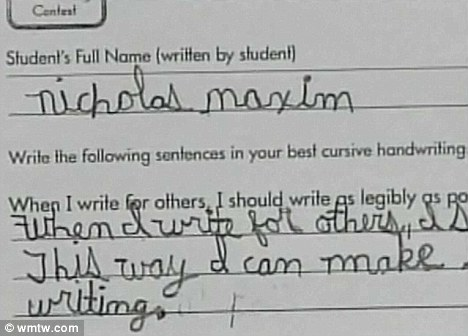 Contest
Student's Full Name (written by student)
nicholas maxim
Write the following sentences in your best cursive handwriting
When I write for others, I should write as legibly as po
When I write for others, I s
This way I can make
writing.
© wmtw.com